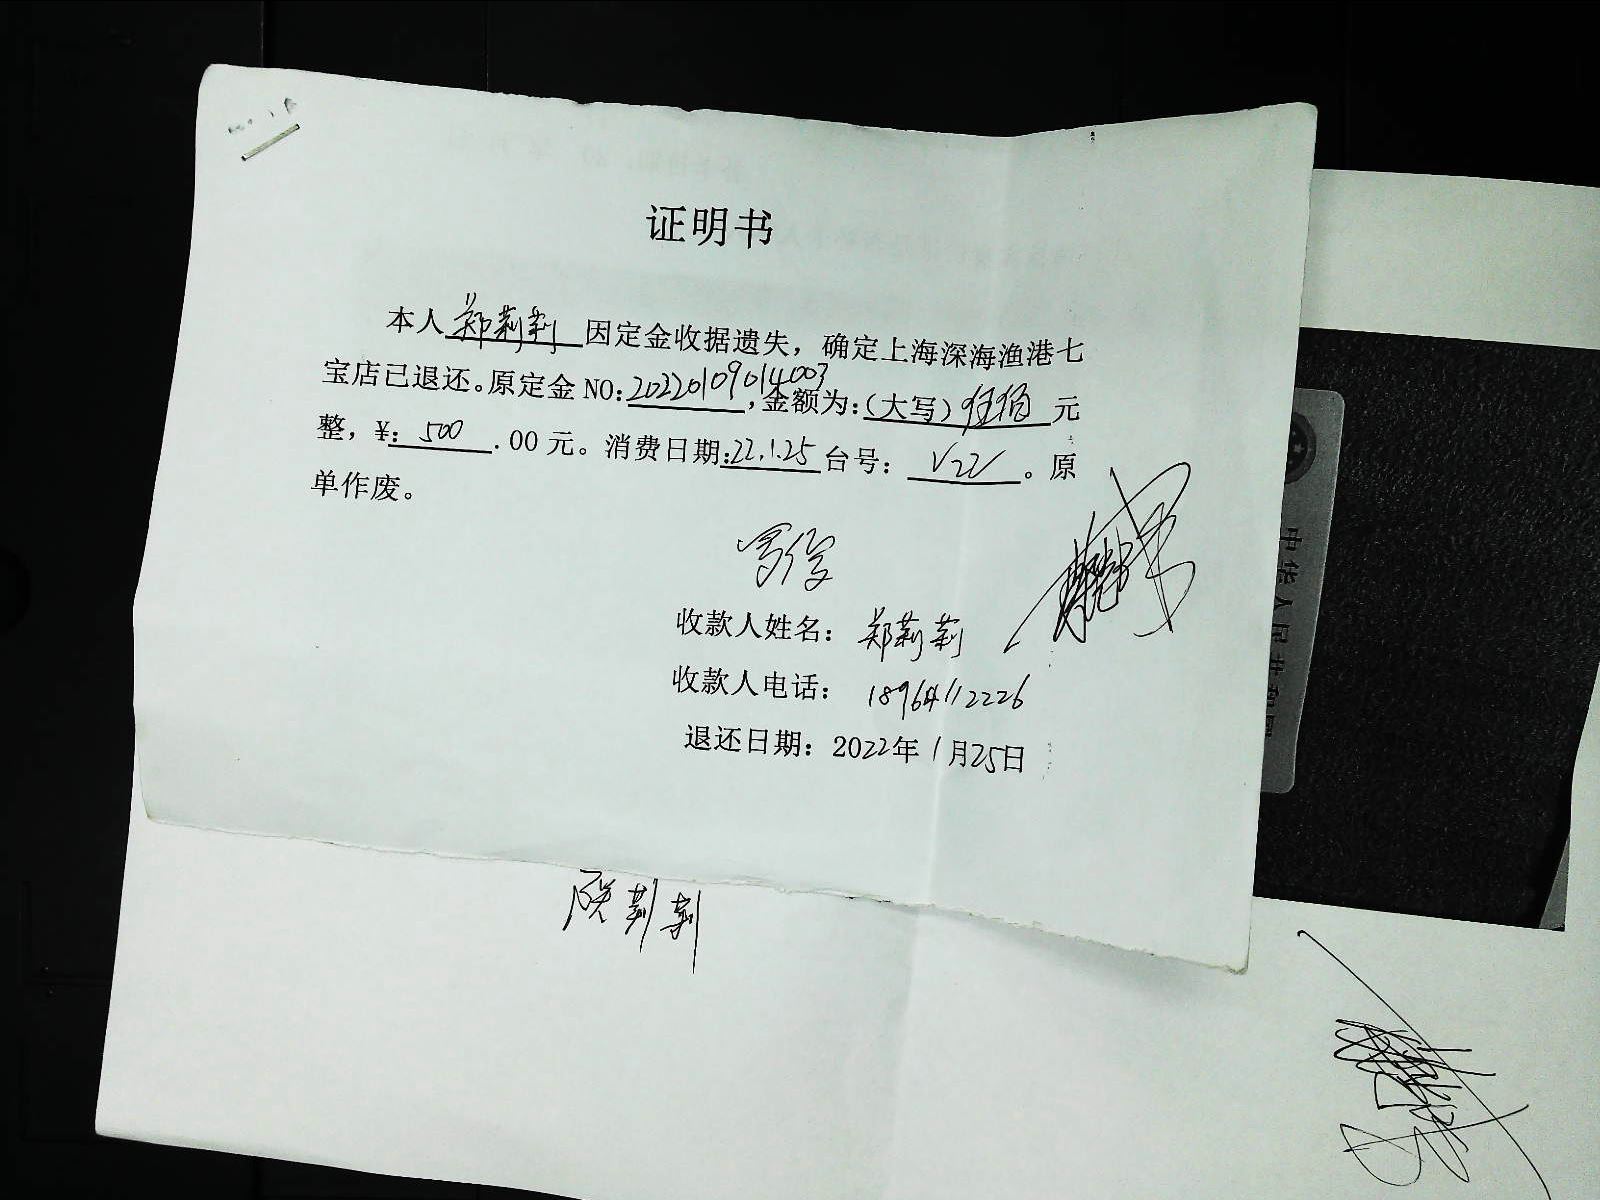 证明书
本人郑莉莉因定金收据遗失，确定上海深海渔港七
宝店已退还。原定金NO:20220109014003，金额为:(大写)伍佰元
整，¥:500.00元。消费日期:22.1.25台号：V22。原
单作废。
收款人姓名：郑莉莉
收款人电话：18964112226
退还日期：2022年1月25日
莉莉
中华人民共和国